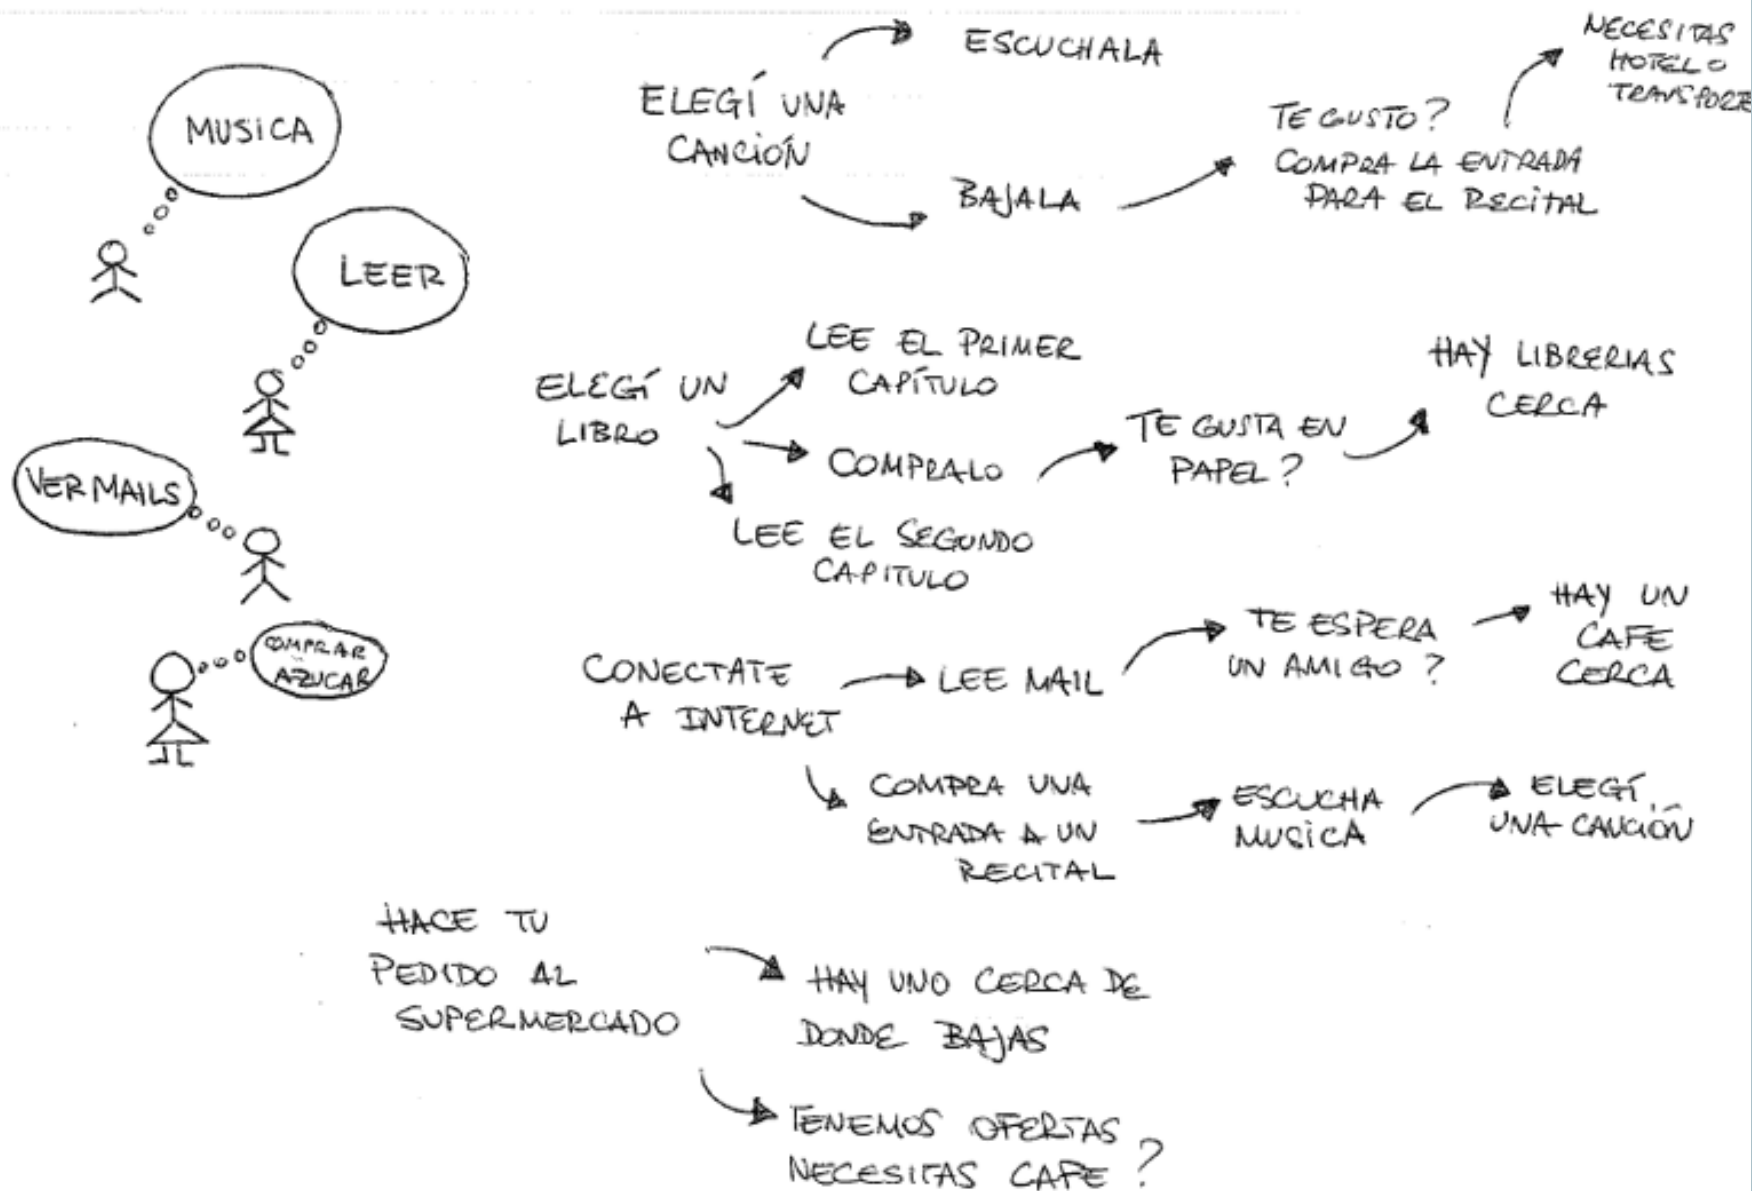 MUSICA
LEER
VER MAILS
COMPRAR
AZUCAR
ELEGÍ UNA
CANCIÓN
ESCUCHALA
BAJALA
TE GUSTO?
COMPRA LA ENTRADA
PARA EL RECITAL
NECESITAS
HOTEL O
TRANSPORTE
ELEGÍ UN
LIBRO
LEE EL PRIMER
CAPÍTULO
COMPRALO
LEE EL SEGUNDO
CAPITULO
TE GUSTA EN
PAPEL?
HAY LIBRERIAS
CERCA
CONECTATE
A INTERNET
LEE MAIL
TE ESPERA
UN AMIGO?
HAY UN
CAFE
CERCA
COMPRA UNA
ENTRADA A UN
RECITAL
ESCUCHA
MUSICA
ELEGÍ
UNA CANCIÓN
HACE TU
PEDIDO AL
SUPERMERCADO
HAY UNO CERCA DE
DONDE BAJAS
TENEMOS OFERTAS
NECESITAS CAFE?